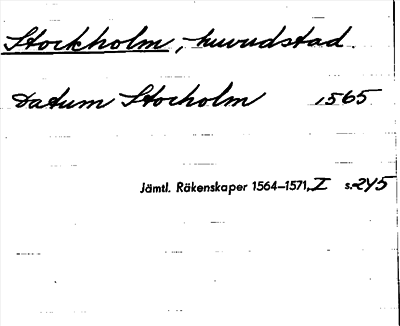 Stockholm, huvudstad.
Datum Stocholm 1565
Jämtl. Räkenskaper 1564–1571, I s. 245